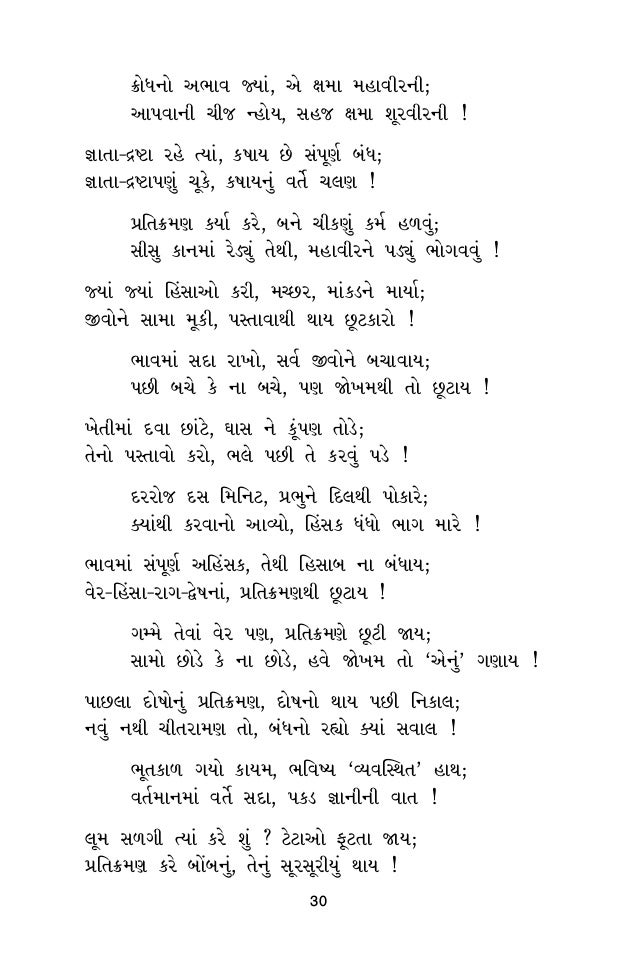 ક્રોધનો અભાવ જ્યાં, એ ક્ષમા મહાવીરની;
આપવાની ચીજ ન્હોય, સહજ ક્ષમા શૂરવીરની !
જ્ઞાતા-દ્રષ્ટા રહે ત્યાં, કષાય છે સંપૂર્ણ બંધ;
જ્ઞાતા-દ્રષ્ટાપણું ચૂકે, કષાયનું વર્તે ચલણ !
પ્રતિક્રમણ કર્યા કરે, બને ચીકણું કર્મ હળવું;
સીસુ કાનમાં રેડ્યું તેથી, મહાવીરને પડ્યું ભોગવવું !
જ્યાં જ્યાં હિંસાઓ કરી, મચ્છર, માંકડને માર્યા;
જીવોને સામા મૂકી, પસ્તાવાથી થાય છૂટકારો !
ભાવમાં સદા રાખો, સર્વ જીવોને બચાવાય;
પછી બચે કે ના બચે, પણ જોખમથી તો છૂટાય !
ખેતીમાં દવા છાંટે, ઘાસ ને કૂંપણ તોડે;
તેનો પસ્તાવો કરો, ભલે પછી તે કરવું પડે !
દરરોજ દસ મિનિટ, પ્રભુને દિલથી પોકારે;
ક્યાંથી કરવાનો આવ્યો, હિંસક ધંધો ભાગ મારે !
ભાવમાં સંપૂર્ણ અહિંસક, તેથી હિસાબ ના બંધાય;
વેર-હિંસા-રાગ-દ્વેષનાં, પ્રતિક્રમણથી છૂટાય !
ગમ્મે તેવાં વેર પણ, પ્રતિક્રમણે છૂટી જાય;
સામો છોડે કે ના છોડે, હવે જોખમ તો ‘એનું’ ગણાય !
પાછલા દોષોનું પ્રતિક્રમણ, દોષનો થાય પછી નિકાલ;
નવું નથી ચીતરામણ તો, બંધનો રહ્યો ક્યાં સવાલ !
ભૂતકાળ ગયો કાયમ, ભવિષ્ય ‘વ્યવસ્થિત’ હાથ;
વર્તમાનમાં વર્તે સદા, પકડ જ્ઞાનીની વાત !
લૂમ સળગી ત્યાં કરે શું ? ટેટાઓ ફૂટતા જાય;
પ્રતિક્રમણ કરે બોંબનું, તેનું સૂરસૂરીયું થાય !
30